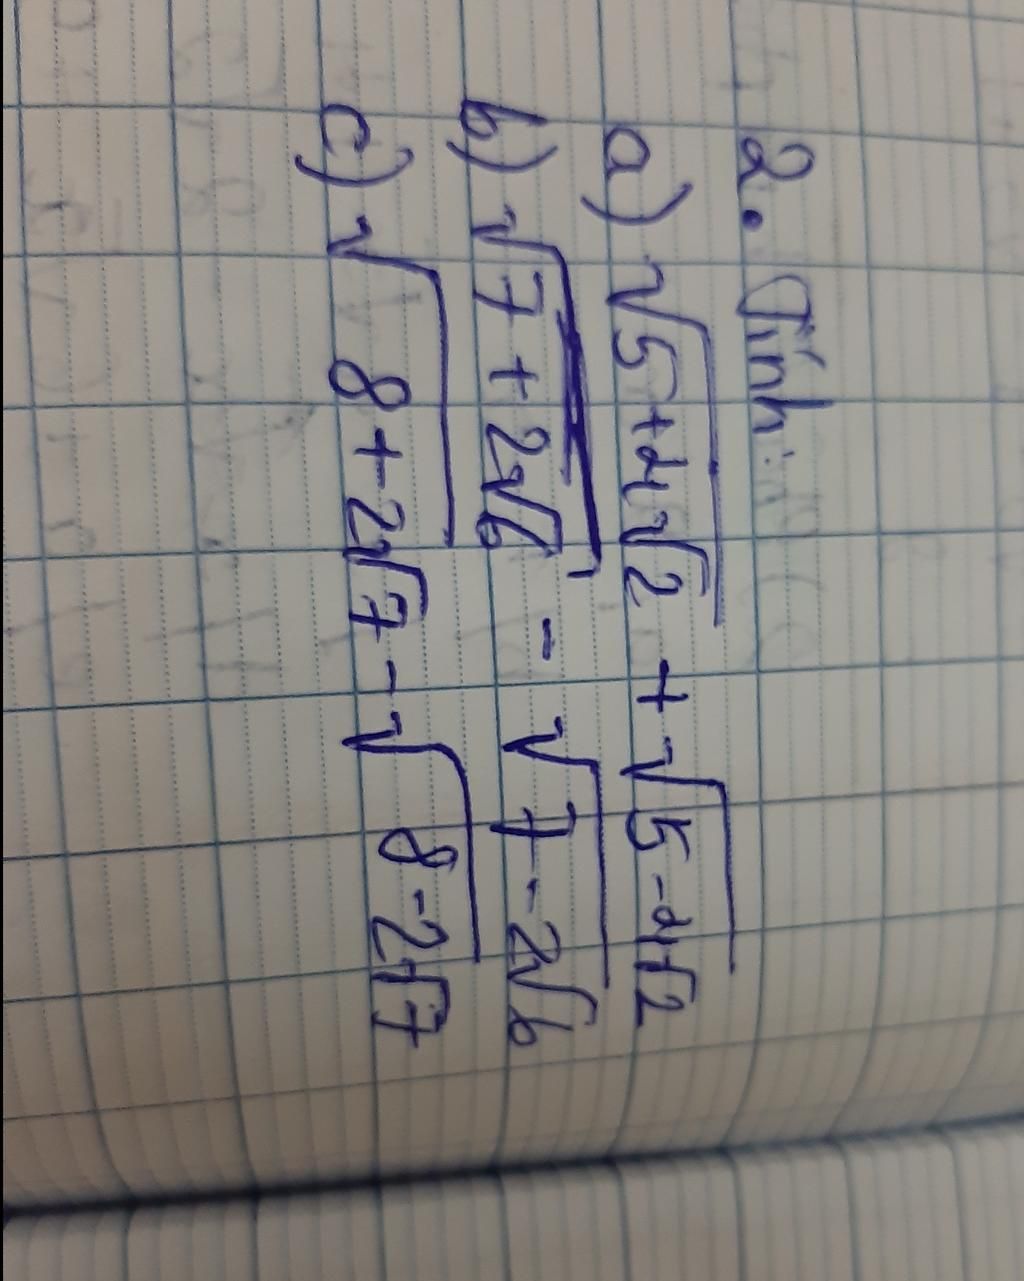 2. Tính:
a) √5+4√2 + √5-4√2
b) √7+2√6 - √7-2√6
c) √8+2√7 - √8-2√7